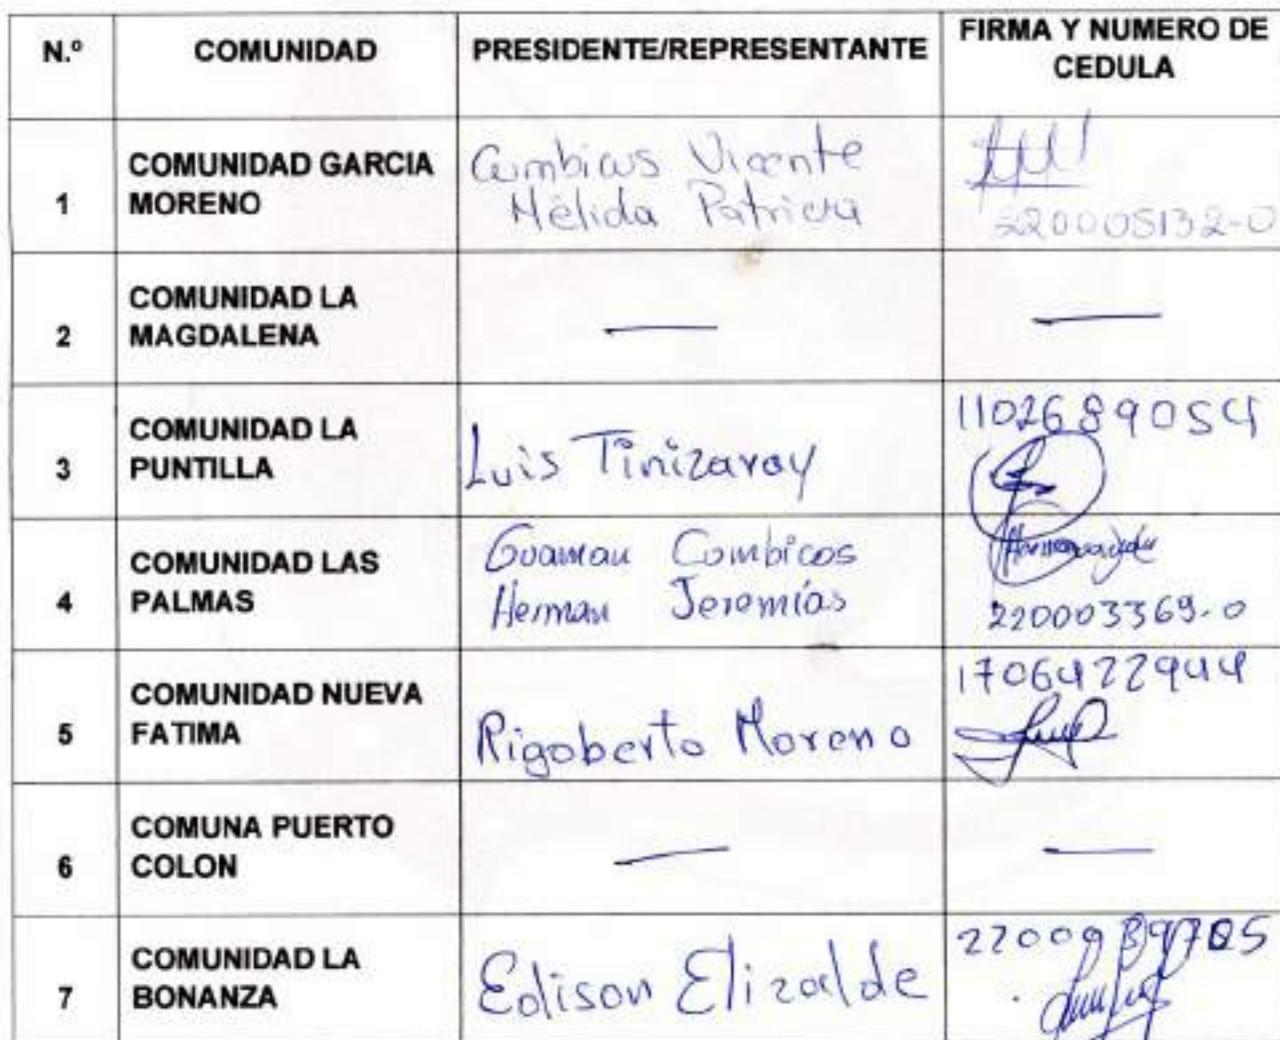 N.º COMUNIDAD PRESIDENTE/REPRESENTANTE FIRMA Y NUMERO DE
CEDULA
1 COMUNIDAD GARCIA
MORENO
Cumbicus Vicente
Mélida Patricia
220005132-0
2 COMUNIDAD LA
MAGDALENA
—
—
3 COMUNIDAD LA
PUNTILLA
Luis Tinizaray
1102689054
4 COMUNIDAD LAS
PALMAS
Guaman Cumbicos
Herman Jeremías
220003369-0
5 COMUNIDAD NUEVA
FATIMA
Rigoberto Moreno
1706422944
6 COMUNA PUERTO
COLON
—
—
7 COMUNIDAD LA
BONANZA
Edison Elizalde